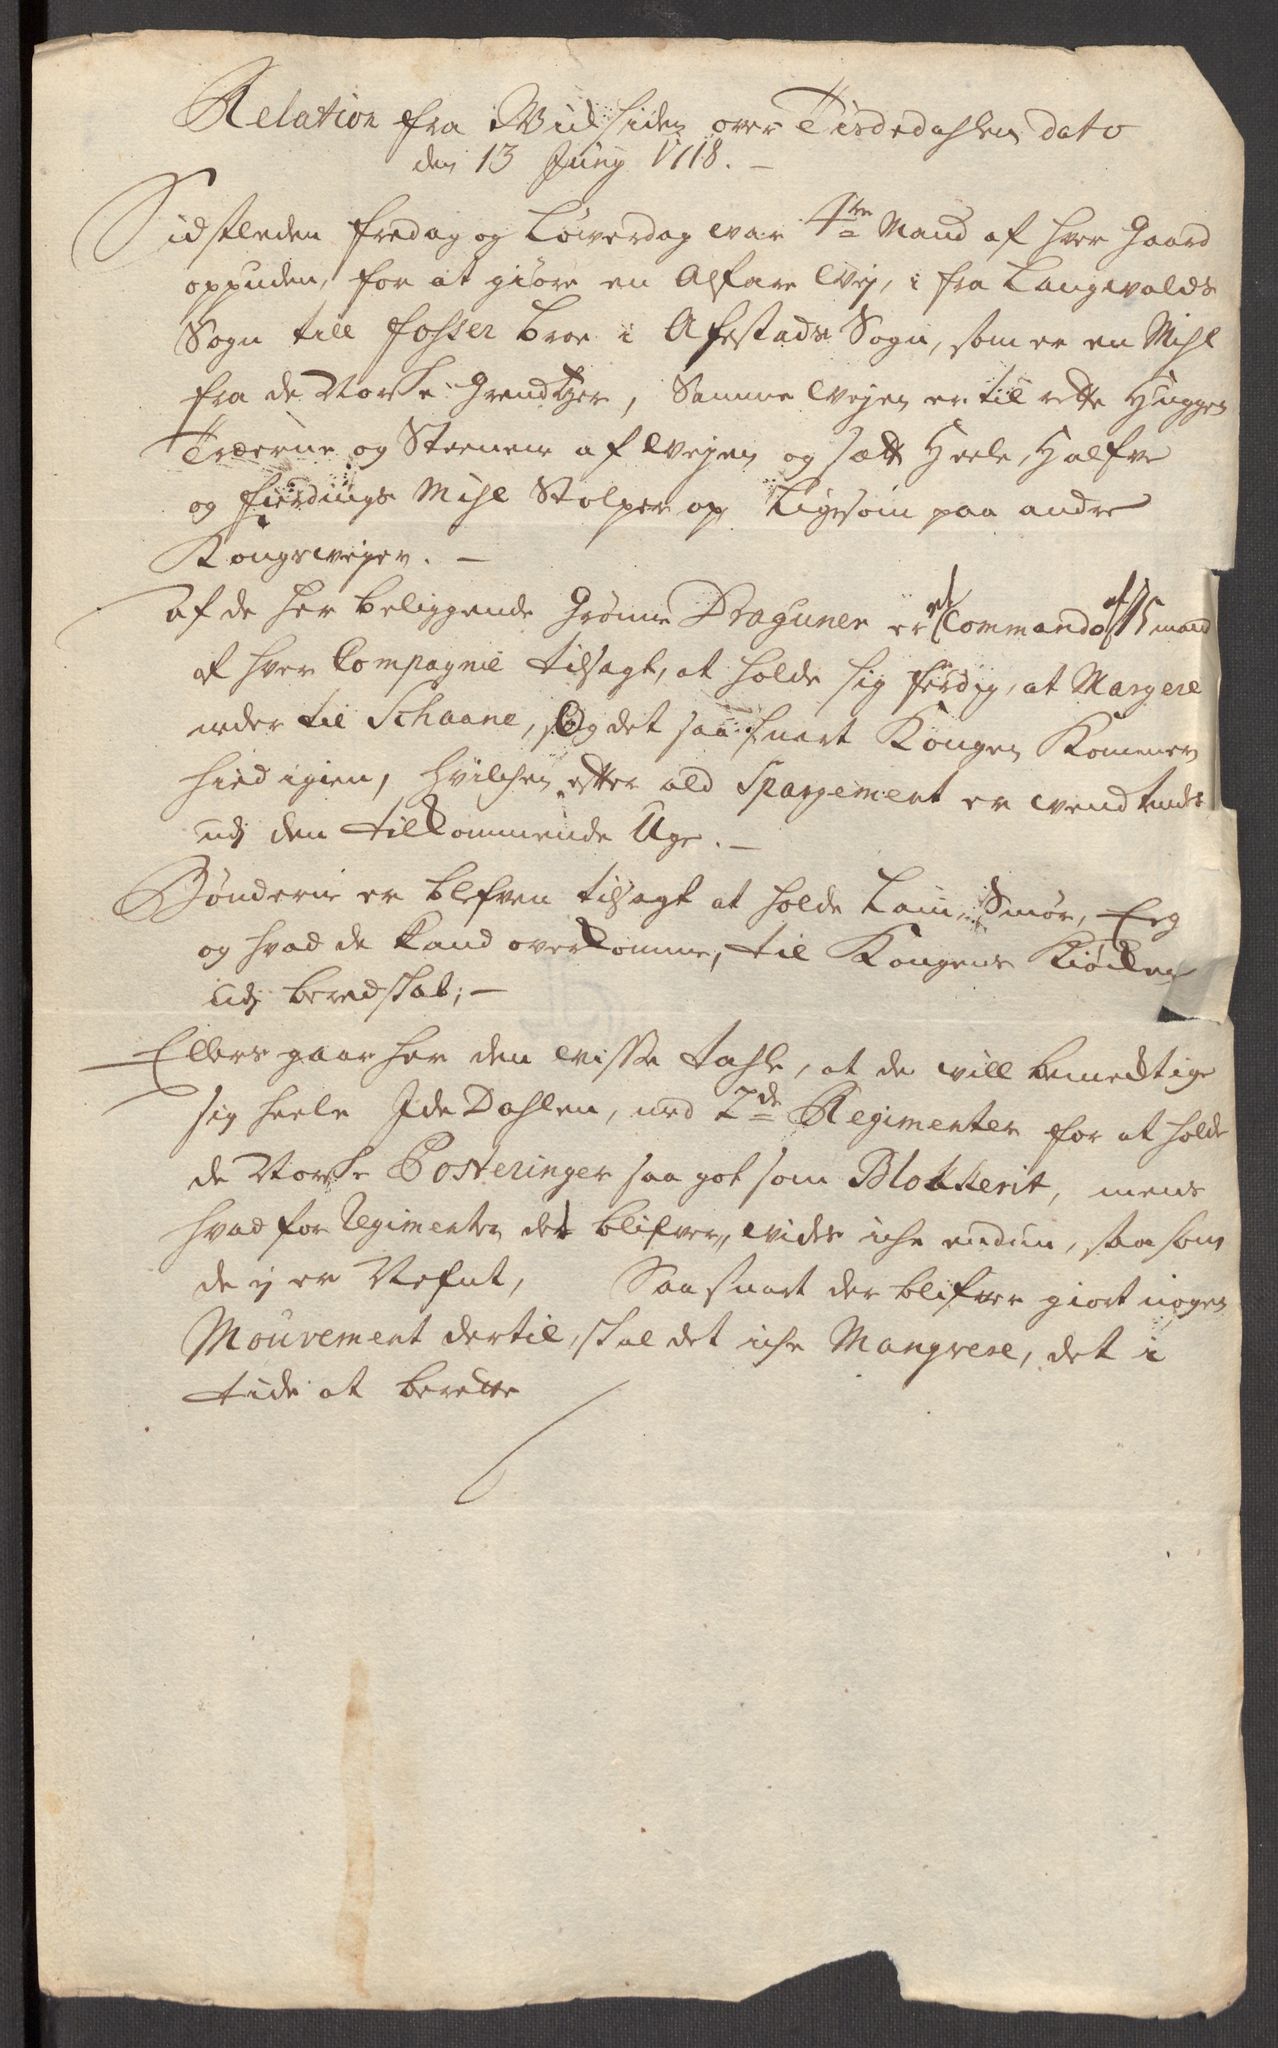 Relation fra Wudsiden over Tisdedahlen dato
den 13 Juny 1718. –
Sidstleden fredag og Løwerdag war 4re Mand af hver Gaard
oppuden, for at giöre en Alfare Wej, i fra Langwalds
Sogn till fosser broe i Afestads Sogn, som er en Mihl
fra de Norske Grendtzer, Samme Wejen er til rette Hugges
Træerne og Steenene af Wejen og satt Heele, Halfve
og fierdings Mihl Stolper op Ligesom paa andre
Kongeweyer. –
af de her beliggende Grønne Draguner er et Commando af 15 mand
af hver Compagnie tilsagt, at holde sig ferdig, at Margere
neder til Schaane, Og det saa snart Kongen Kommer
hid igien, hvilchen efter ald Spargement er wendtendes
udj den tilkommende Uge. –
Bönderne er blefven tilsagt at holde Lam, Smör, Eeg
og hvad de kand overkomme, til Kongens Kiöcken
udj beredskab; –
Ellers gaar her den wisse tahle, at de will bemectige
sig heele Ide Dahlen, med 2de Regimenter for at holde
de Norske Posteringer saa got som Blokkerit, mens
hvad for Regimenter det blifver, wides iche endnu, saa som
de ej er Nefnt, Saa snart der blifver giort nogen
Mouvement dertil, skal det iche Mangvere, det i
tide at berette